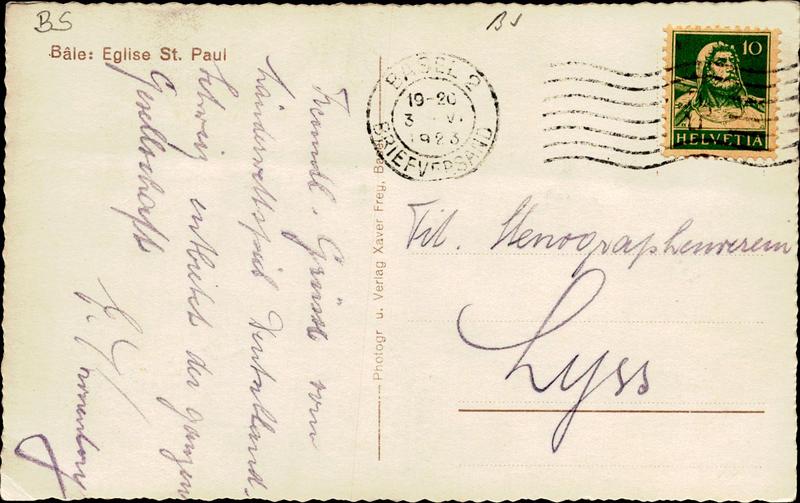 BS
BS
Bâle: Eglise St. Paul
Freundl. Grüsse vom
Länderwettspiel Deutschland-
Schweiz entbietet der ganzen
Gesellschaft
BASEL 2
19-20
3 VI
1923
BRIEFVERSAND
10
HELVETIA
Photogr. u. Verlag Xaver Frey, Ba
Tit. Stenographenverein
Lyss